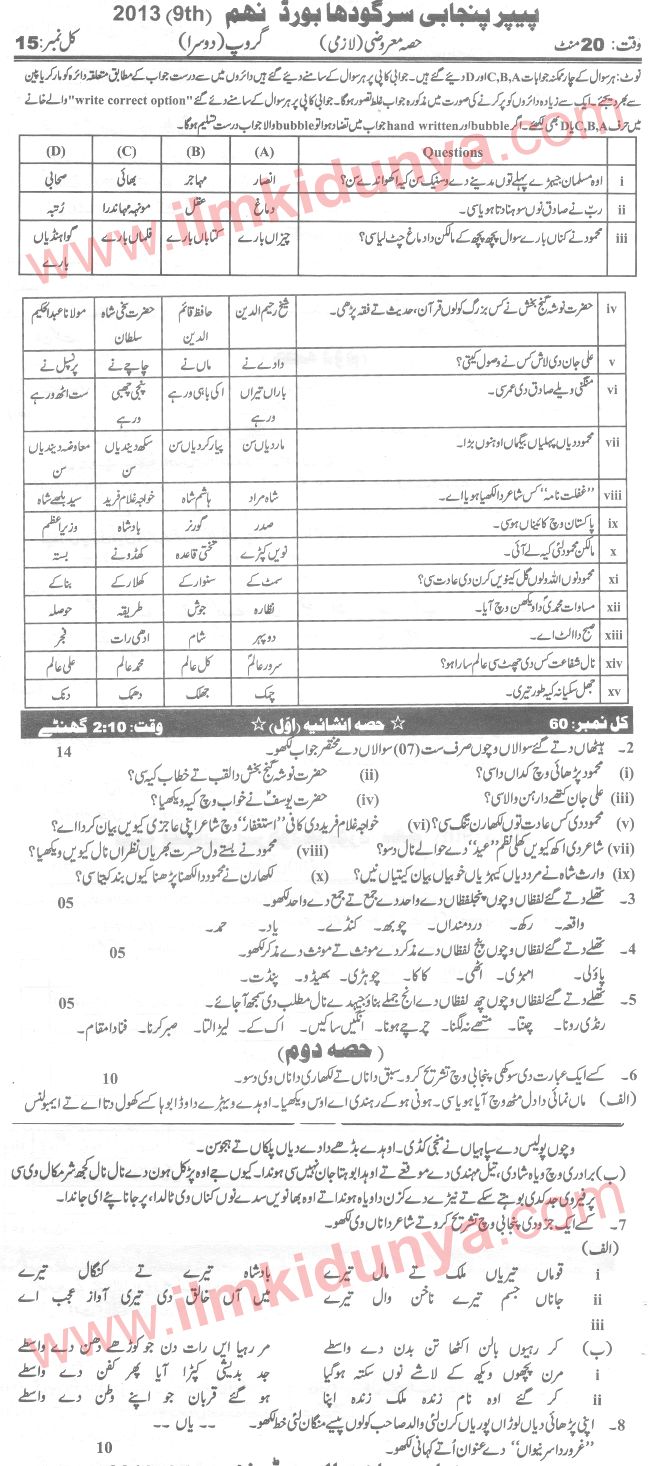 پیپر پنجابی سرگودھا بورڈ نہم (9th) 2013
وقت: 20 منٹ حصہ معروضی (لازمی) گروپ (دوسرا) کل نمبر: 15
نوٹ: ہر سوال کے چار ممکنہ جوابات C,B,A اور D دیئے گئے ہیں۔ جوابی کاپی پر ہر سوال کے سامنے دیئے گئے دائروں میں سے درست جواب کے مطابق متعلقہ دائرہ کو مارکر یا پین
سے بھر دیجئے۔ ایک سے زیادہ دائروں کو پر کرنے کی صورت میں مذکورہ جواب غلط تصور ہوگا۔ جوابی کاپی پر ہر سوال کے سامنے دیئے گئے "write correct option" والے خانے
میں حرف C,B,A یا D بھی لکھئے۔ اگر bubble اور hand written جواب میں تضاد ہوا تو bubble والا جواب درست تسلیم ہوگا۔
Questions (A) (B) (C) (D)
i اوہ مسلمان جیہڑے پہلے توں مدینے دے وسنیک سن کیہ اکھواندے سن؟ انصار مہاجر بھائی صحابی
ii ربّ نے صادق نوں سوہنا دتا ہویا سی۔ دماغ عقل مونہہ مہاندرا رُتبہ
iii محمود نے کناں بارے سوال پچھ پچھ کے مالکن دا دماغ چٹ لیا سی؟ چیزاں بارے کتاباں بارے فلماں بارے گواہنڈیاں بارے
iv حضرت نوشہ گنج بخش نے کس بزرگ کولوں قرآن، حدیث تے فقہ پڑھی۔ شیخ رحیم الدین حافظ قائم الدین حضرت سخی شاہ سلطان مولانا عبدالحکیم
v علی جان دی لاش کس نے وصول کیتی؟ دادے نے ماں نے چاچے نے پرنسپل نے
vi منگنی ویلے صادق دی عمر سی۔ باراں تیراں ورہے اکی باہی ورہے پنجی چھبی ورہے ست اٹھ ورہے
vii محمود دیاں پہلیاں بیگماں اوہنوں بڑا۔ ماردیاں سن پیار کردیاں سن سکھ دیندیاں سن معاوضہ دیندیاں سن
viii "غفلت نامہ" کس شاعر دا لکھیا ہویا اے۔ شاہ مراد ہاشم شاہ خواجہ غلام فرید سید بلھے شاہ
ix پاکستان وچ کائیناں ہوسی۔ صدر گورنر بادشاہ وزیراعظم
x مالکن محمود لئی کیہ لے آئی۔ نویں کپڑے تختی قاعدہ کھڈونے بستہ
xi محمود نوں اللہ ولوں گل کینویں کرن دی عادت سی؟ سمٹ کے سنوار کے کھلار کے بنا کے
xii مساوات محمدیؐ دا دیکھن وچ آیا۔ نظارہ جوش طریقہ حوصلہ
xiii صبح دا الٹ اے۔ دوپہر شام ادھی رات فجر
xiv نال شفاعت کس دی چھٹ سی عالم سارا ہو؟ سرور عالمؐ کل عالم محمد عالم علی عالم
xv جھل سکیا نہ کیہ طور تیری۔ چمک جھلک دھمک دنک
کل نمبر: 60 ☆ حصہ انشائیہ (اوّل) ☆ وقت: 2:10 گھنٹے
2۔ ہیٹھاں دتے گئے سوالاں وچوں صرف ست (07) سوالاں دے مختصر جواب لکھو۔ 14
(i) محمود پڑھائی وچ کداں دا سی؟ (ii) حضرت نوشہ گنج بخش دا لقب تے خطاب کیہ سی؟
(iii) علی جان کتھے دا رہن والا سی؟ (iv) حضرت یوسفؑ نے خواب وچ کیہ ویکھیا؟
(v) محمود دی کس عادت توں لکھارن تنگ سی؟ (vi) خواجہ غلام فرید دی کافی "استغفار" وچ شاعر اپنی عاجزی کیویں بیان کردا اے؟
(vii) شاعر دی اکھ کیویں کھلی نظم "عید" دے حوالے نال دسو؟ (viii) محمود نے بستے ول حسرت بھریاں نظراں نال کیوں ویکھیا؟
(ix) وارث شاہ نے مرد دیاں کیہڑیاں خوبیاں بیان کیتیاں نیں؟ (x) لکھارن نے محمود دا لکھنا پڑھنا کیوں بند کیتا سی؟
3۔ تھلے دتے گئے لفظاں وچوں پنج لفظاں دے واحد دے جمع تے جمع دے واحد لکھو۔ 05
واقعہ۔ رکھ۔ دردمنداں۔ چوبھہ۔ کنڈے۔ یاد۔ حمد۔
4۔ تھلے دتے گئے لفظاں وچوں پنج لفظاں دے مذکر دے مونث تے مونث دے مذکر لکھو۔ 05
پاؤلی۔ امبڑی۔ اٹھی۔ کاکا۔ چوہڑی۔ بھیڈو۔ پنڈت۔
5۔ تھلے دتے گئے لفظاں وچوں چھ لفظاں دے انج جملے بناؤ جیہدے نال مطلب دی سمجھ آ جائے۔ 05
رنڈی رونا۔ چنتا۔ متھے نہ لگنا۔ چرچے ہونا۔ انگیں ساکیں۔ اک کے۔ لیڑا لتا۔ صبر کرنا۔ فنا دا مقام۔
(حصہ دوم)
6۔ کسے ایک عبارت دی سوکھی پنجابی وچ تشریح کرو۔ سبق دا ناں تے لکھاری دا ناں وی دسو۔ 10
(الف) ماں نمائی دا دل مٹھ وچ آیا ہویا سی۔ ہونی ہو کے رہندی اے اوس ویکھیا۔ اوہدے ویہڑے دا وڈا بوہا کسے کھول دتا اے تے ایمبولنس
وچوں پولیس دے سپاہیاں نے منجی کڈی۔ اوہدے بڈھے دادے دیاں پلکاں تے ہنجو سن۔
(ب) برادری وچ ویاہ شادی، تیل مہندی دے موقعے تے اوہدا بوہتا جان نہیں سی ہوندا۔ کیوں جے اوہ پڑ کل ہون دے نال نال کجھ شرمکال وی سی
پر فیر وی جد کدی بوہتے سکے تے نیڑے دے کزن دا ویاہ ہوندا تے اوہ بھانویں سدے نوں کناں وی ٹالدا، پر جانا پئے ای جاندا۔
7۔ کسے ایک جزو دی پنجابی وچ تشریح کرو تے شاعر دا ناں وی لکھو۔
(الف)
i قوماں تیریاں ملک تے مال تیرے بادشاہ تیرے تے کنگال تیرے
ii جاناں جسم تیرے ناخن وال تیرے میں آں خالق دی تیری آواز عجب اے
iii
(ب) کر رہیوں بالن اکٹھا تن بدن دے واسطے مر رہیا ایں رات دن جو کوڑھے دھن دے واسطے
i مرن پچھوں ویکھ کے لاشے نوں سکتہ ہوگیا جد بدیشی کپڑا آیا پھر کفن دے واسطے
ii کر گئے اوہ نام زندہ ملک زندہ اپنا ہو گئے قربان جو اپنے وطن دے واسطے
8۔ اپنی پڑھائی دیاں لوڑاں پوریاں کرن لئی والد صاحب کولوں پیسے منگان لئی خط لکھو۔ -- یاں --
"غرور دا سر نیواں" دے عنوان اُتے کہانی لکھو۔ 10
www.ilmkidunya.com
www.ilmkidunya.com